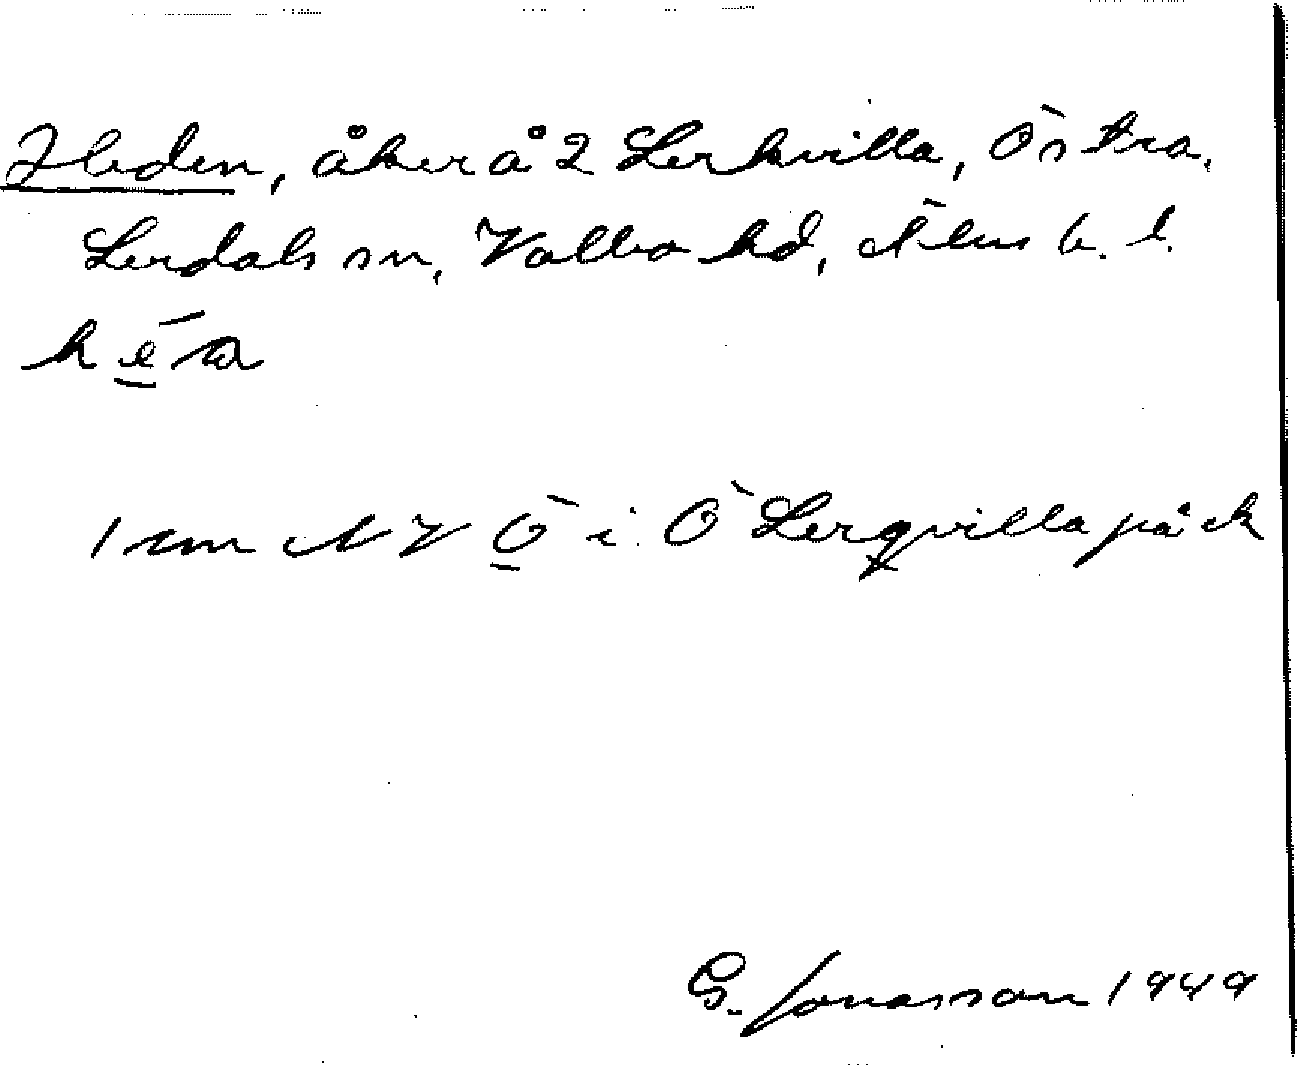 Heden, åker å 2 Lerkvilla, Östra,
Lerdals sn, Valbo hd, Älvs b. l.
héa
1 cm NV Ö i Ö Lerqvilla på ek
G. Jonasson 1949